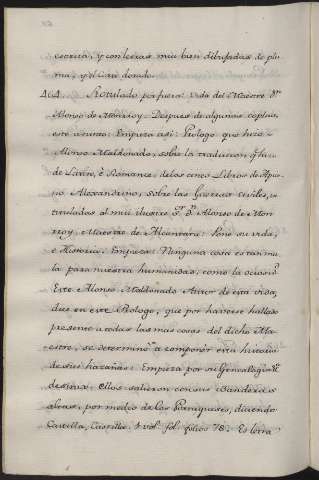 escrita, y con letras mui bien dibujadas de plu-
ma, y el Canto dorado.
Rotulado por fuera: Vida del Maestre Dn
Alonso de Monrroy: Despues de algunas coplas,
este asunto: Empieza asi: Prologo que hizo
Alonso Maldonado, sobre la traducion q hizo
de Latin, è Romance, de los cinco Libros de Apia-
no Alexandrino, sobre las Guerras civiles, in
titulados al mui ilustre Sr Dn Alonso de Mon
rroy, Maestre de Alcantara: Pone su vida,
è Historia. Empieza: Ninguna cosa es tan ma
la para nuestra humanidad, como la ociosid
Este Alonso Maldonado Autor de esta vida,
dice en este Prologo, que por haverse hallado
presente a todas las mas cosas del dicho Ma-
estre, se determinó a componer esta historia
de sus hazañas: Empieza por su Genealogia, y
Ellos salieron con sus Vanderas
alzas, por medio de los Portugueses, diciendo
Castilla, Castilla. 1 vol. fol. folios 78. Es letra